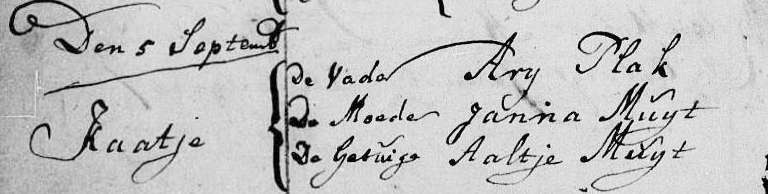 Den 5 Septemb
De Vader Ary Plak
De Moeder Janna Muyt
Kaatje
De Getuige Aaltje Muyt